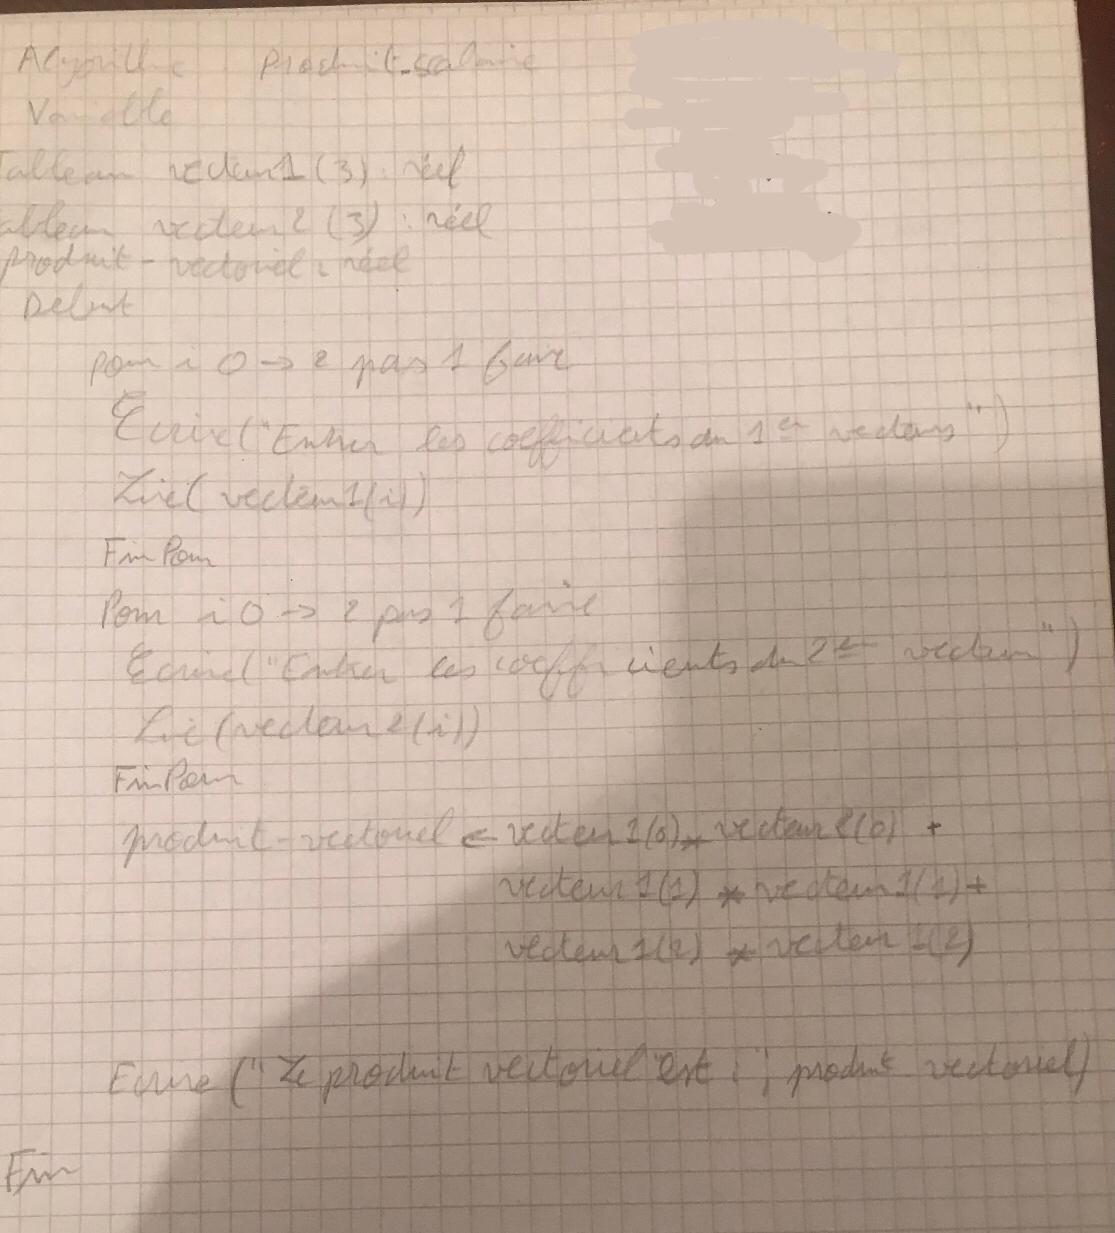 Algorithme Produit_scalaire
Variable
Tableau vecteur1 (3) : réel
ableau vecteur2 (3) : réel
produit-vectoriel : réel
Debut
pour i 0 → 2 pas 1 faire
Ecrire("Entrer les coefficients du 1er vecteurs")
Lire(vecteur1(i))
FinPour
Pour i 0 → 2 pas 1 faire
Ecrire("Entrer les coefficients du 2er vecteur")
Lire(vecteur2(i))
FinPour
produit-vectoriel ← vecteur1(0) * vecteur2(0) +
vecteur1(1) * vecteur1(1) +
vecteur1(2) * vecteur1(2)
Ecrire("Le produit vectoriel est :", produit vectoriel)
Fin